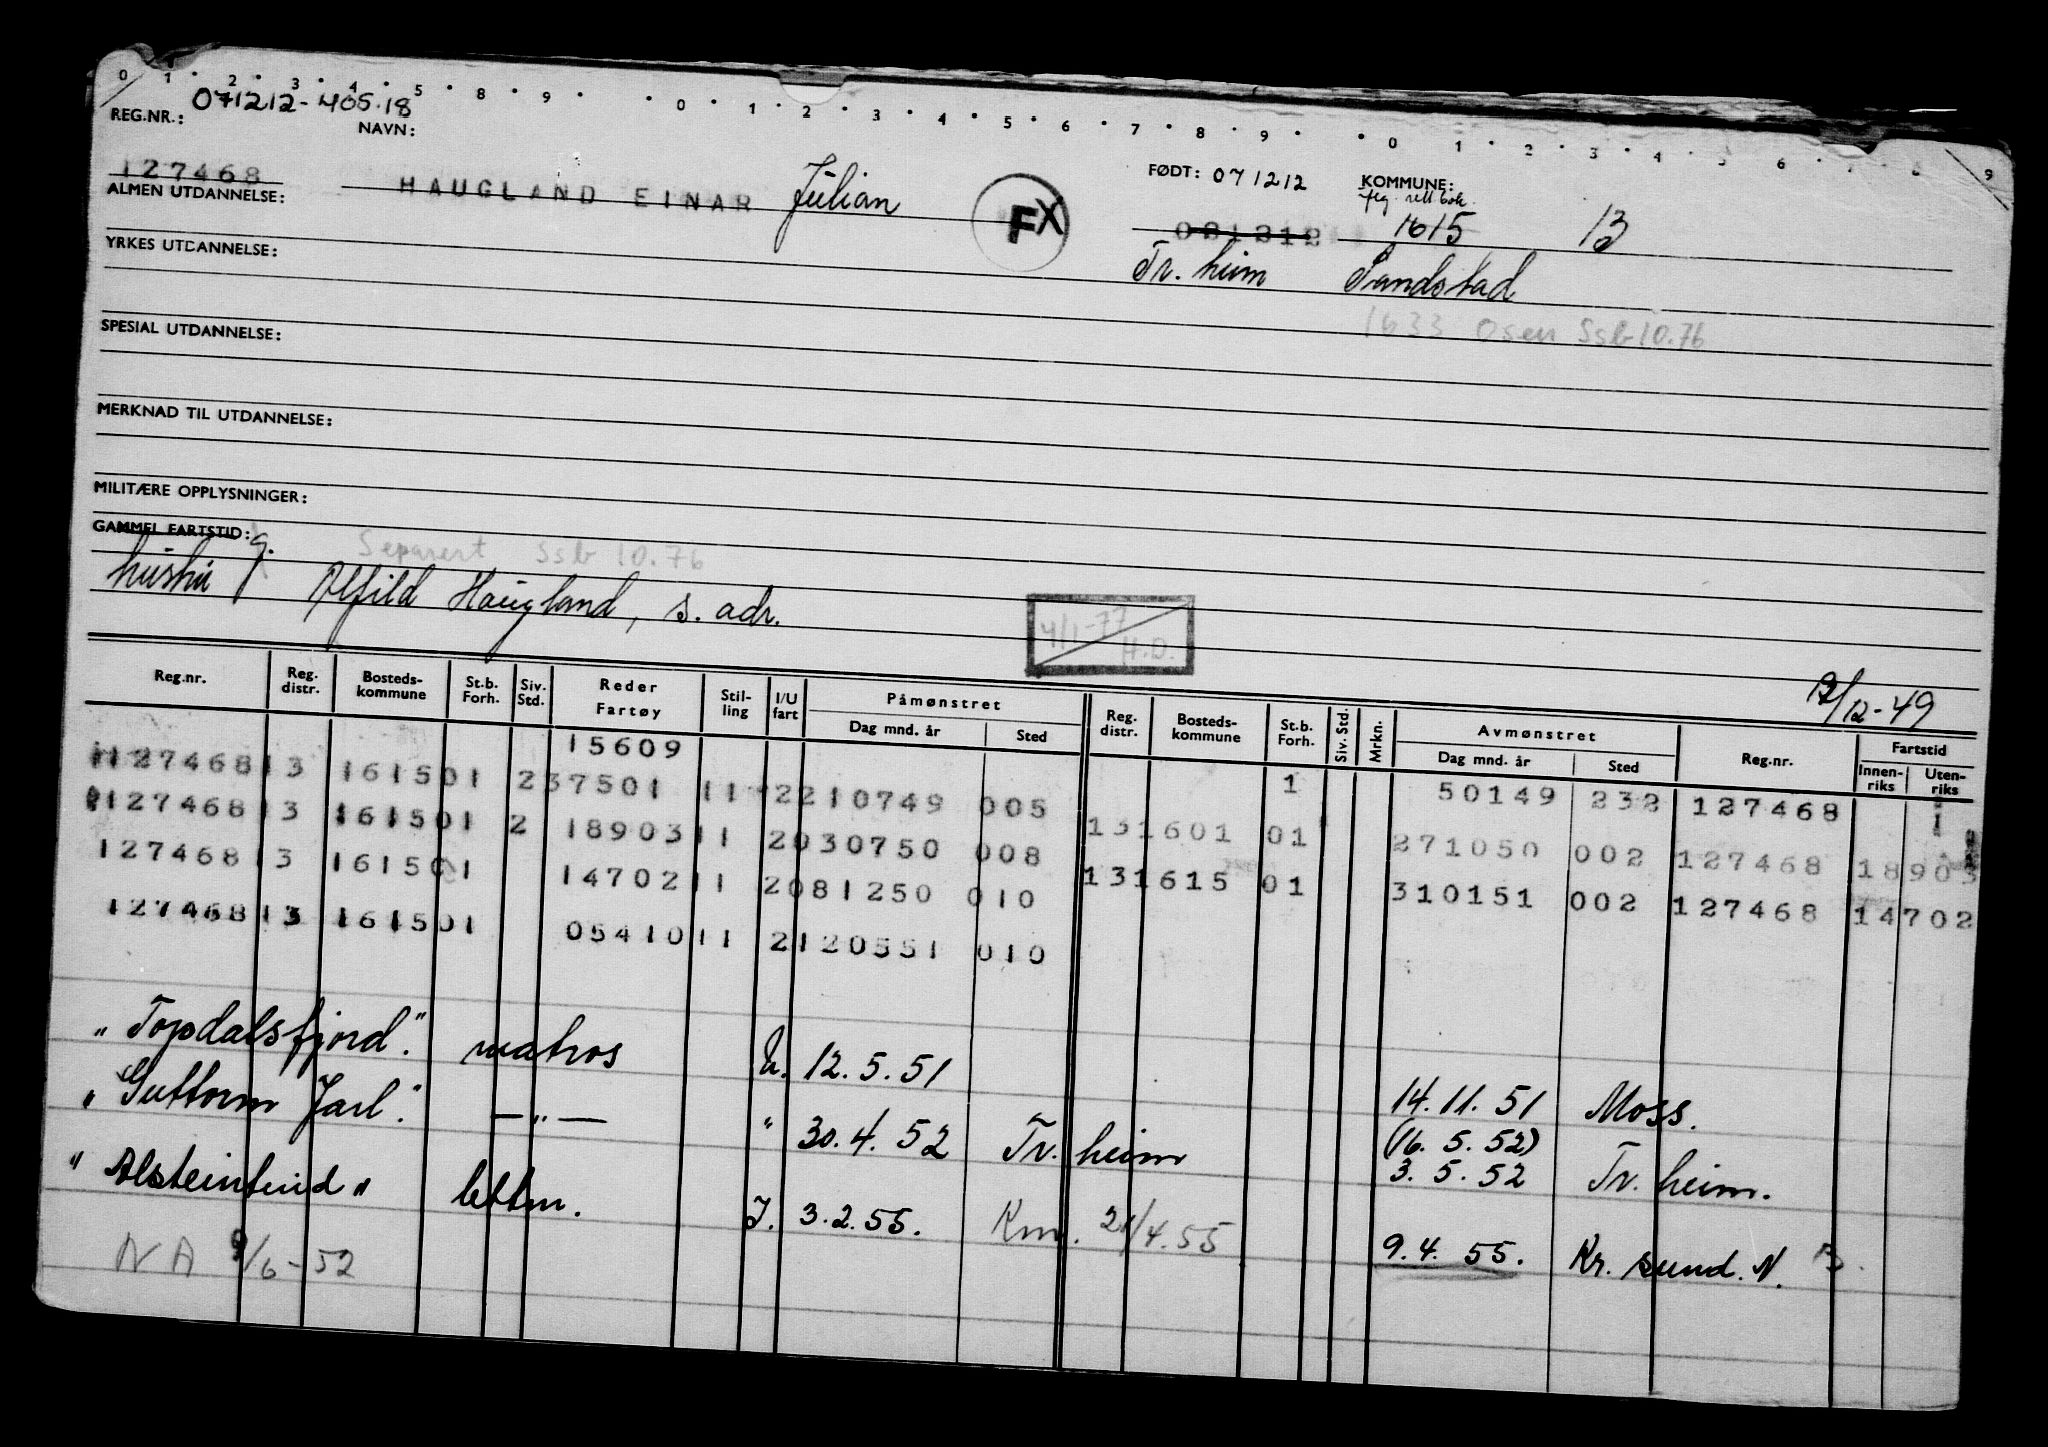 0 1 2 3 4 5 8 9 0 1 2 3 4 5 6 7 8 9 0 1 2 3 4 5 6 9
REG.NR.: 071212-405.18 NAVN:
127468 HAUGLAND EINAR Julian FX FØDT: 071212 KOMMUNE:
jfg. rett bok.
081212 1615 13
ALMEN UTDANNELSE:
Tr. heim Sandstad
YRKES UTDANNELSE:
1633 Osen Ssb 10.76
SPESIAL UTDANNELSE:
MERKNAD TIL UTDANNELSE:
MILITÆRE OPPLYSNINGER:
GAMMEL FARTSTID: g. Separert Ssb 10.76
hustru Alfild Haugland, s. adr.
4/1-77 H.O.
12/12-49
Reg.nr. Reg. distr. Bosteds-kommune St.b. Forh. Siv. Std. Reder Fartøy Stil-ling I/U fart Påmønstret Dag mnd. år Sted Reg. distr. Bosteds-kommune St.b. Forh. Siv. Std. Mrkn. Avmønstret Dag mnd. år Sted Reg.nr. Fartstid Innen-riks Uten-riks
15609
127468 13 1615 01 2 37501 11 2 210749 005 1 50149 232 127468 1
127468 13 1615 01 2 18903 11 2 030750 008 13 1601 01 271050 002 127468 18903
127468 13 1615 01 14702 11 2 081250 010 13 1615 01 310151 002 127468 14702
127468 13 1615 01 05410 11 2 120551 010
"Topdalsfjord." matros U. 12.5.51 14.11.51 Moss.
"Guttorm Jarl." —"— " 30.4.52 Tr. heim (16.5.52) 3.5.52 Tr. heim.
"Alsteintind" lettm. I. 3.2.55. Km. 21/4.55 9.4.55. Kr. sund. N.
NA 9/6-52